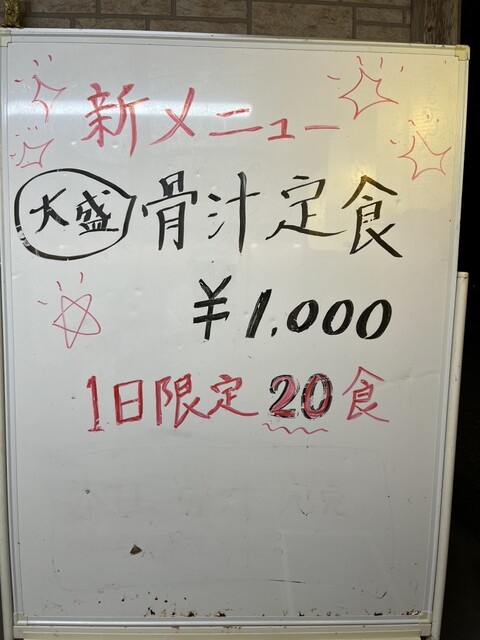 新メニュー
大盛 骨汁定食
¥1,000
1日限定20食